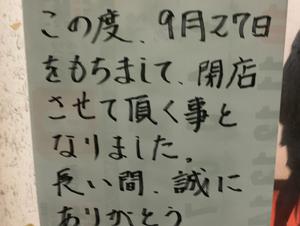 この度、9月27日
をもちまして、閉店
させて頂く事と
なりました。
長い間、誠に
ありがとう